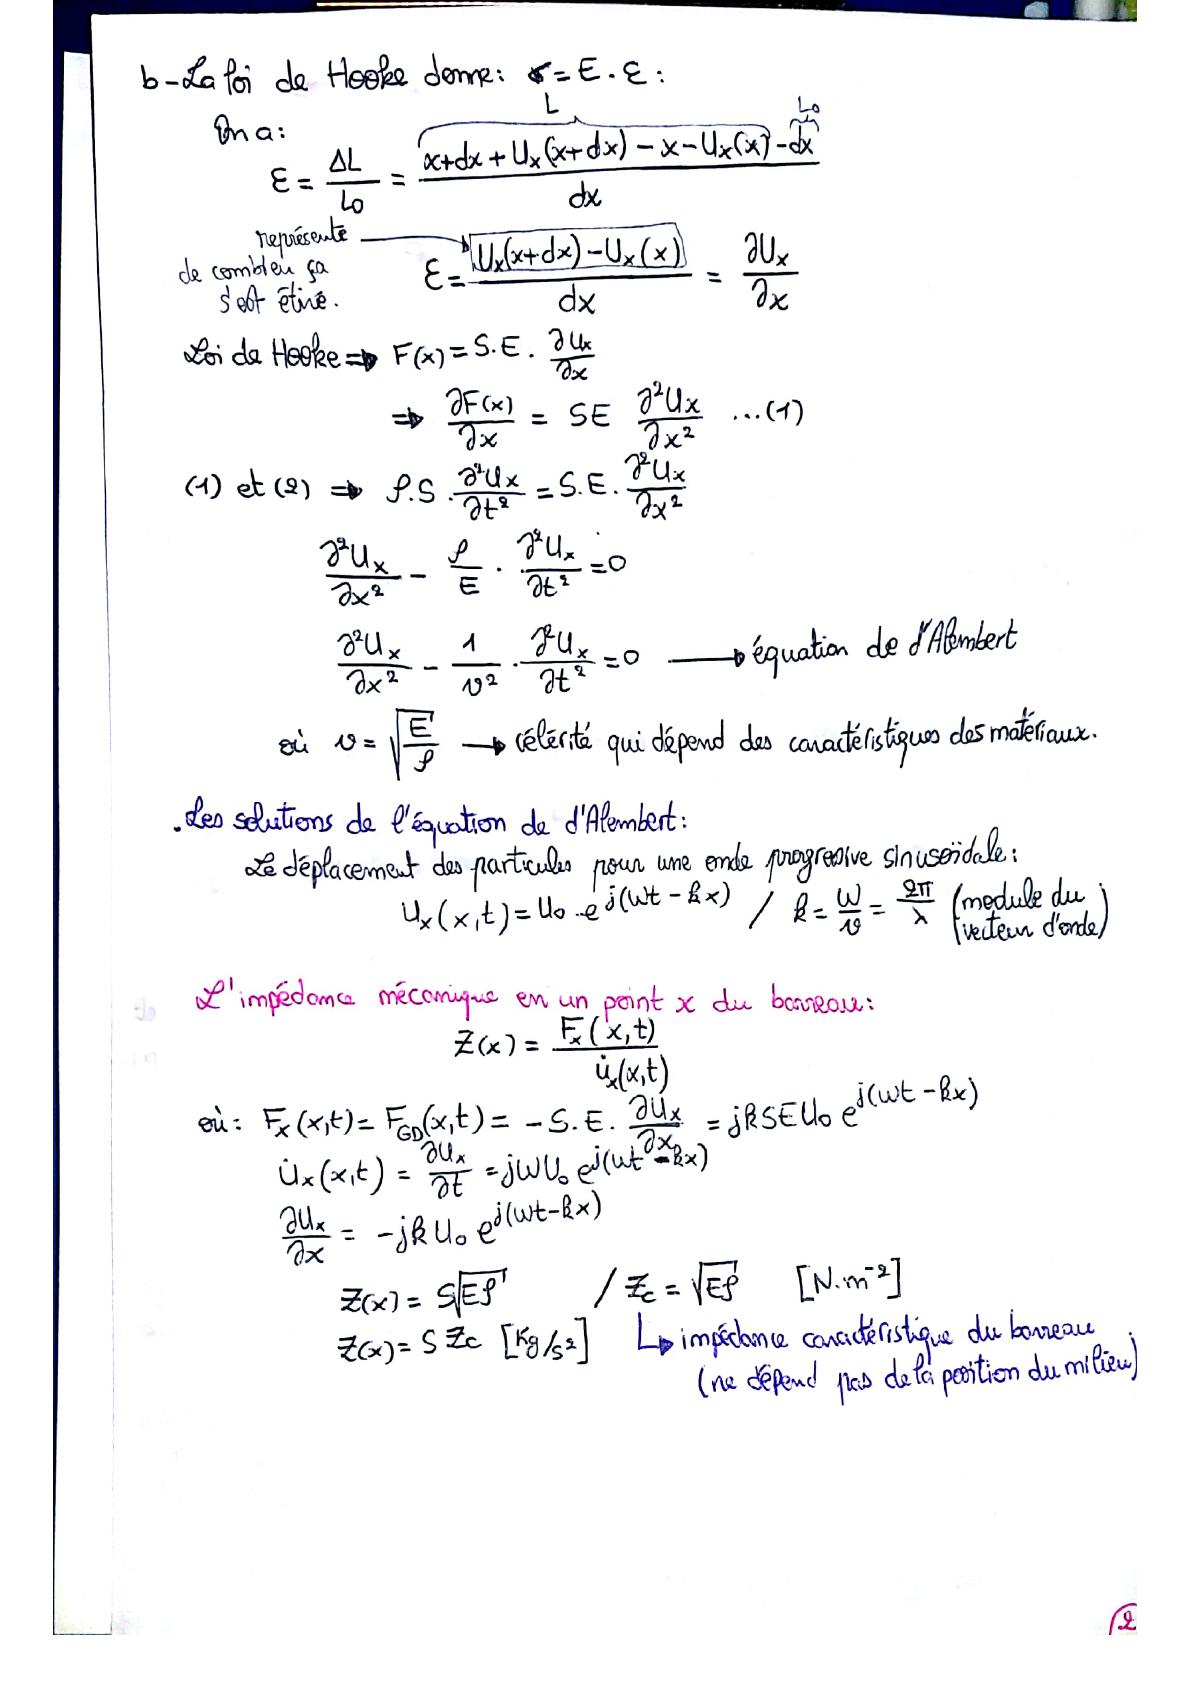 b- La loi de Hooke donne: σ = E . ε :
On a:
L
L₀
ε = ΔL/L₀ = (x+dx + Uₓ(x+dx) - x - Uₓ(x) - dx)/dx
représente de combien ça s'est étiré.
ε = (Uₓ(x+dx) - Uₓ(x))/dx = ∂Uₓ/∂x
Loi de Hooke => F(x) = S.E . ∂Uₓ/∂x
=> ∂F(x)/∂x = SE ∂²Uₓ/∂x² ...(1)
(1) et (2) => ρ.S . ∂²Uₓ/∂t² = S.E . ∂²Uₓ/∂x²
∂²Uₓ/∂x² - ρ/E . ∂²Uₓ/∂t² = 0
∂²Uₓ/∂x² - 1/v² . ∂²Uₓ/∂t² = 0 → équation de d'Alembert
où v = √(E/ρ) → célérité qui dépend des caractéristiques des matériaux.
. Les solutions de l'équation de d'Alembert:
Le déplacement des particules pour une onde progressive sinusoïdale:
Uₓ(x,t) = U₀ . e^j(wt - kx) / k = w/v = 2π/λ (module du vecteur d'onde)
L'impédance mécanique en un point x du barreau:
Z(x) = Fₓ(x,t)/u̇ₓ(x,t)
où: Fₓ(x,t) = F_GD(x,t) = - S.E. ∂Uₓ/∂x = jkSEU₀ e^j(wt - kx)
U̇ₓ(x,t) = ∂Uₓ/∂t = jwU₀ e^j(wt - kx)
∂Uₓ/∂x = -jkU₀ e^j(wt-kx)
Z(x) = S√(Eρ) / Zc = √(Eρ) [N.m⁻²]
Z(x) = S Zc [Kg/s²] ↳ impédance caractéristique du barreau
(ne dépend pas de la position du milieu)
2